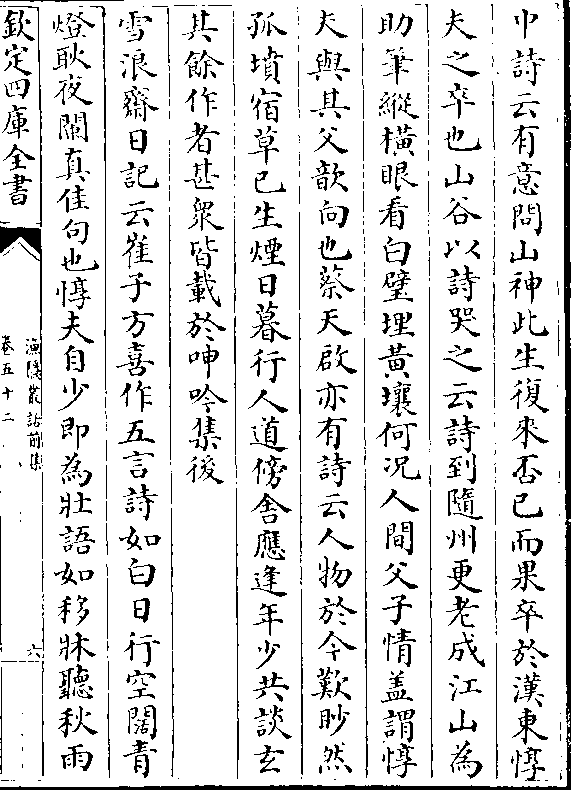 中詩云有意問山神此生復來否已而果卒於漢東惇
夫之卒也山谷以詩哭之云詩到隨州更老成江山為
助筆縱橫眼看白璧埋黃壤何况人間父子情盖謂惇
夫與其父歆向也蔡天啟亦有詩云人物於今歎眇然
孤墳宿草已生煙日暮行人道傍舍應逢年少共談玄
其餘作者甚衆皆載於呻吟集後
雪浪齋日記云崔子方喜作五言詩如白日行空闊青
燈耿夜闌真佳句也惇夫自少即為壯語如移牀聽秋雨
欽定四庫全書
漁隱叢話前集
卷五十二
六